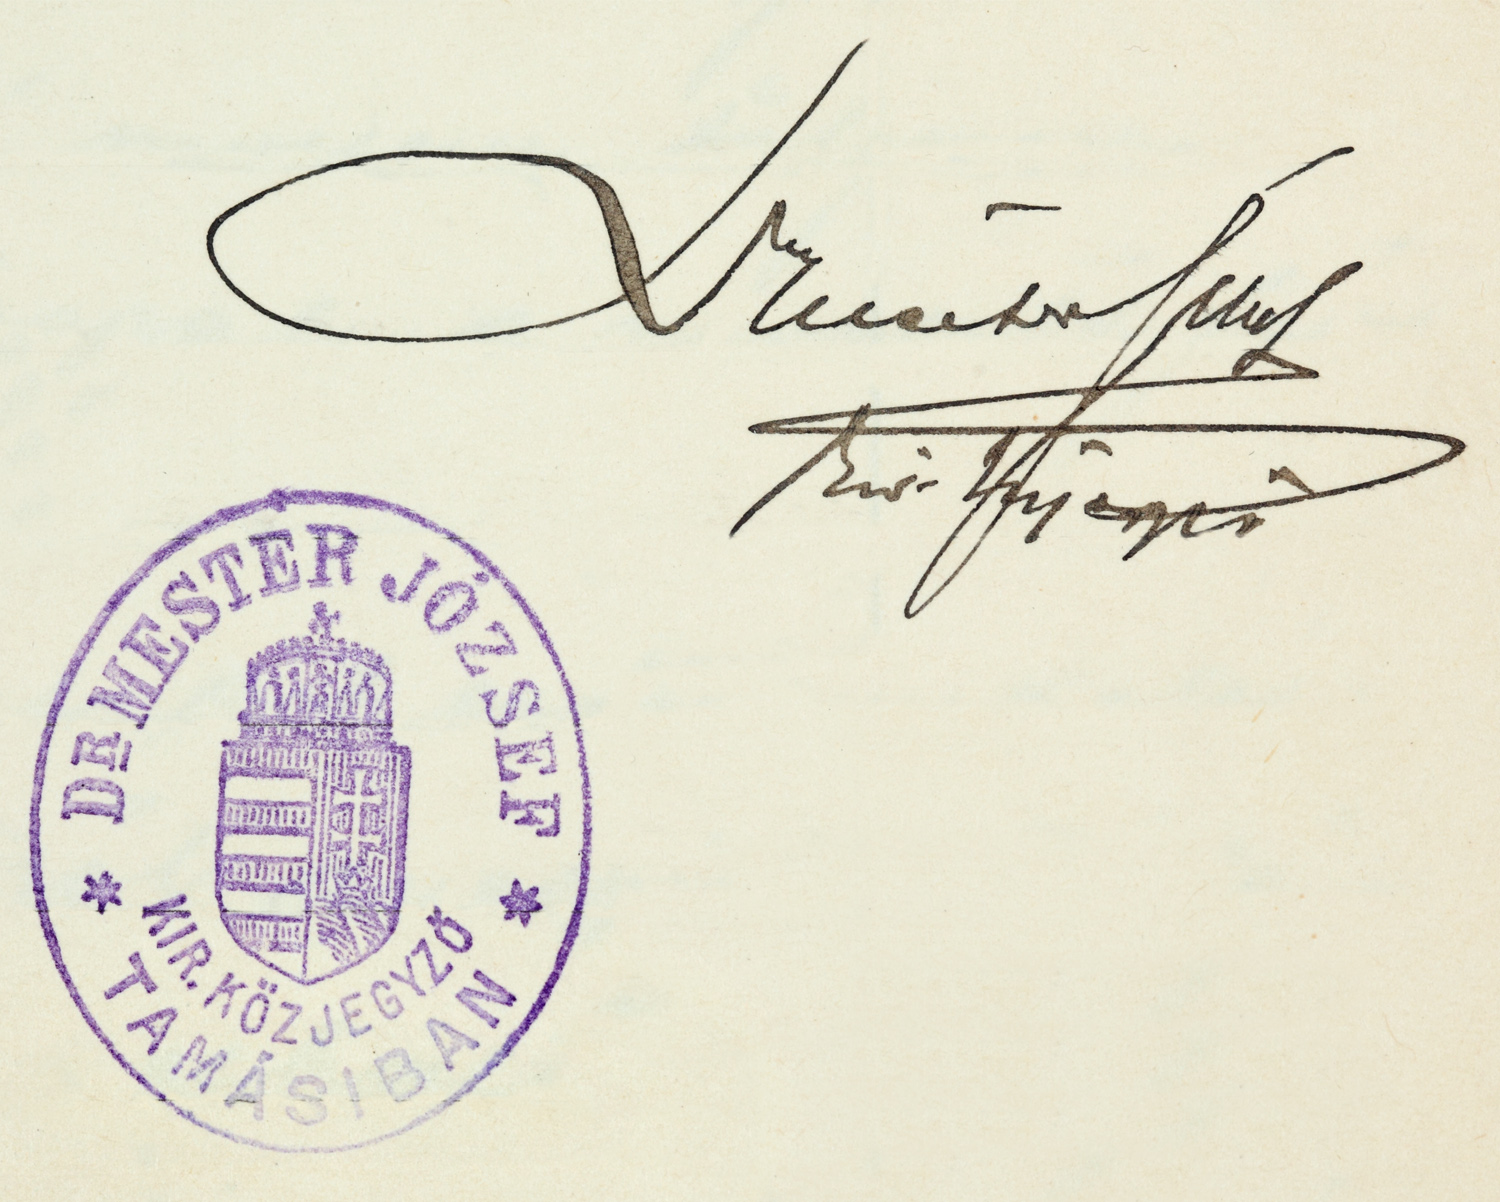 Dr Mester József
kir. közjegyző
DR MESTER JÓZSEF
KIR. KÖZJEGYZŐ
TAMÁSIBAN